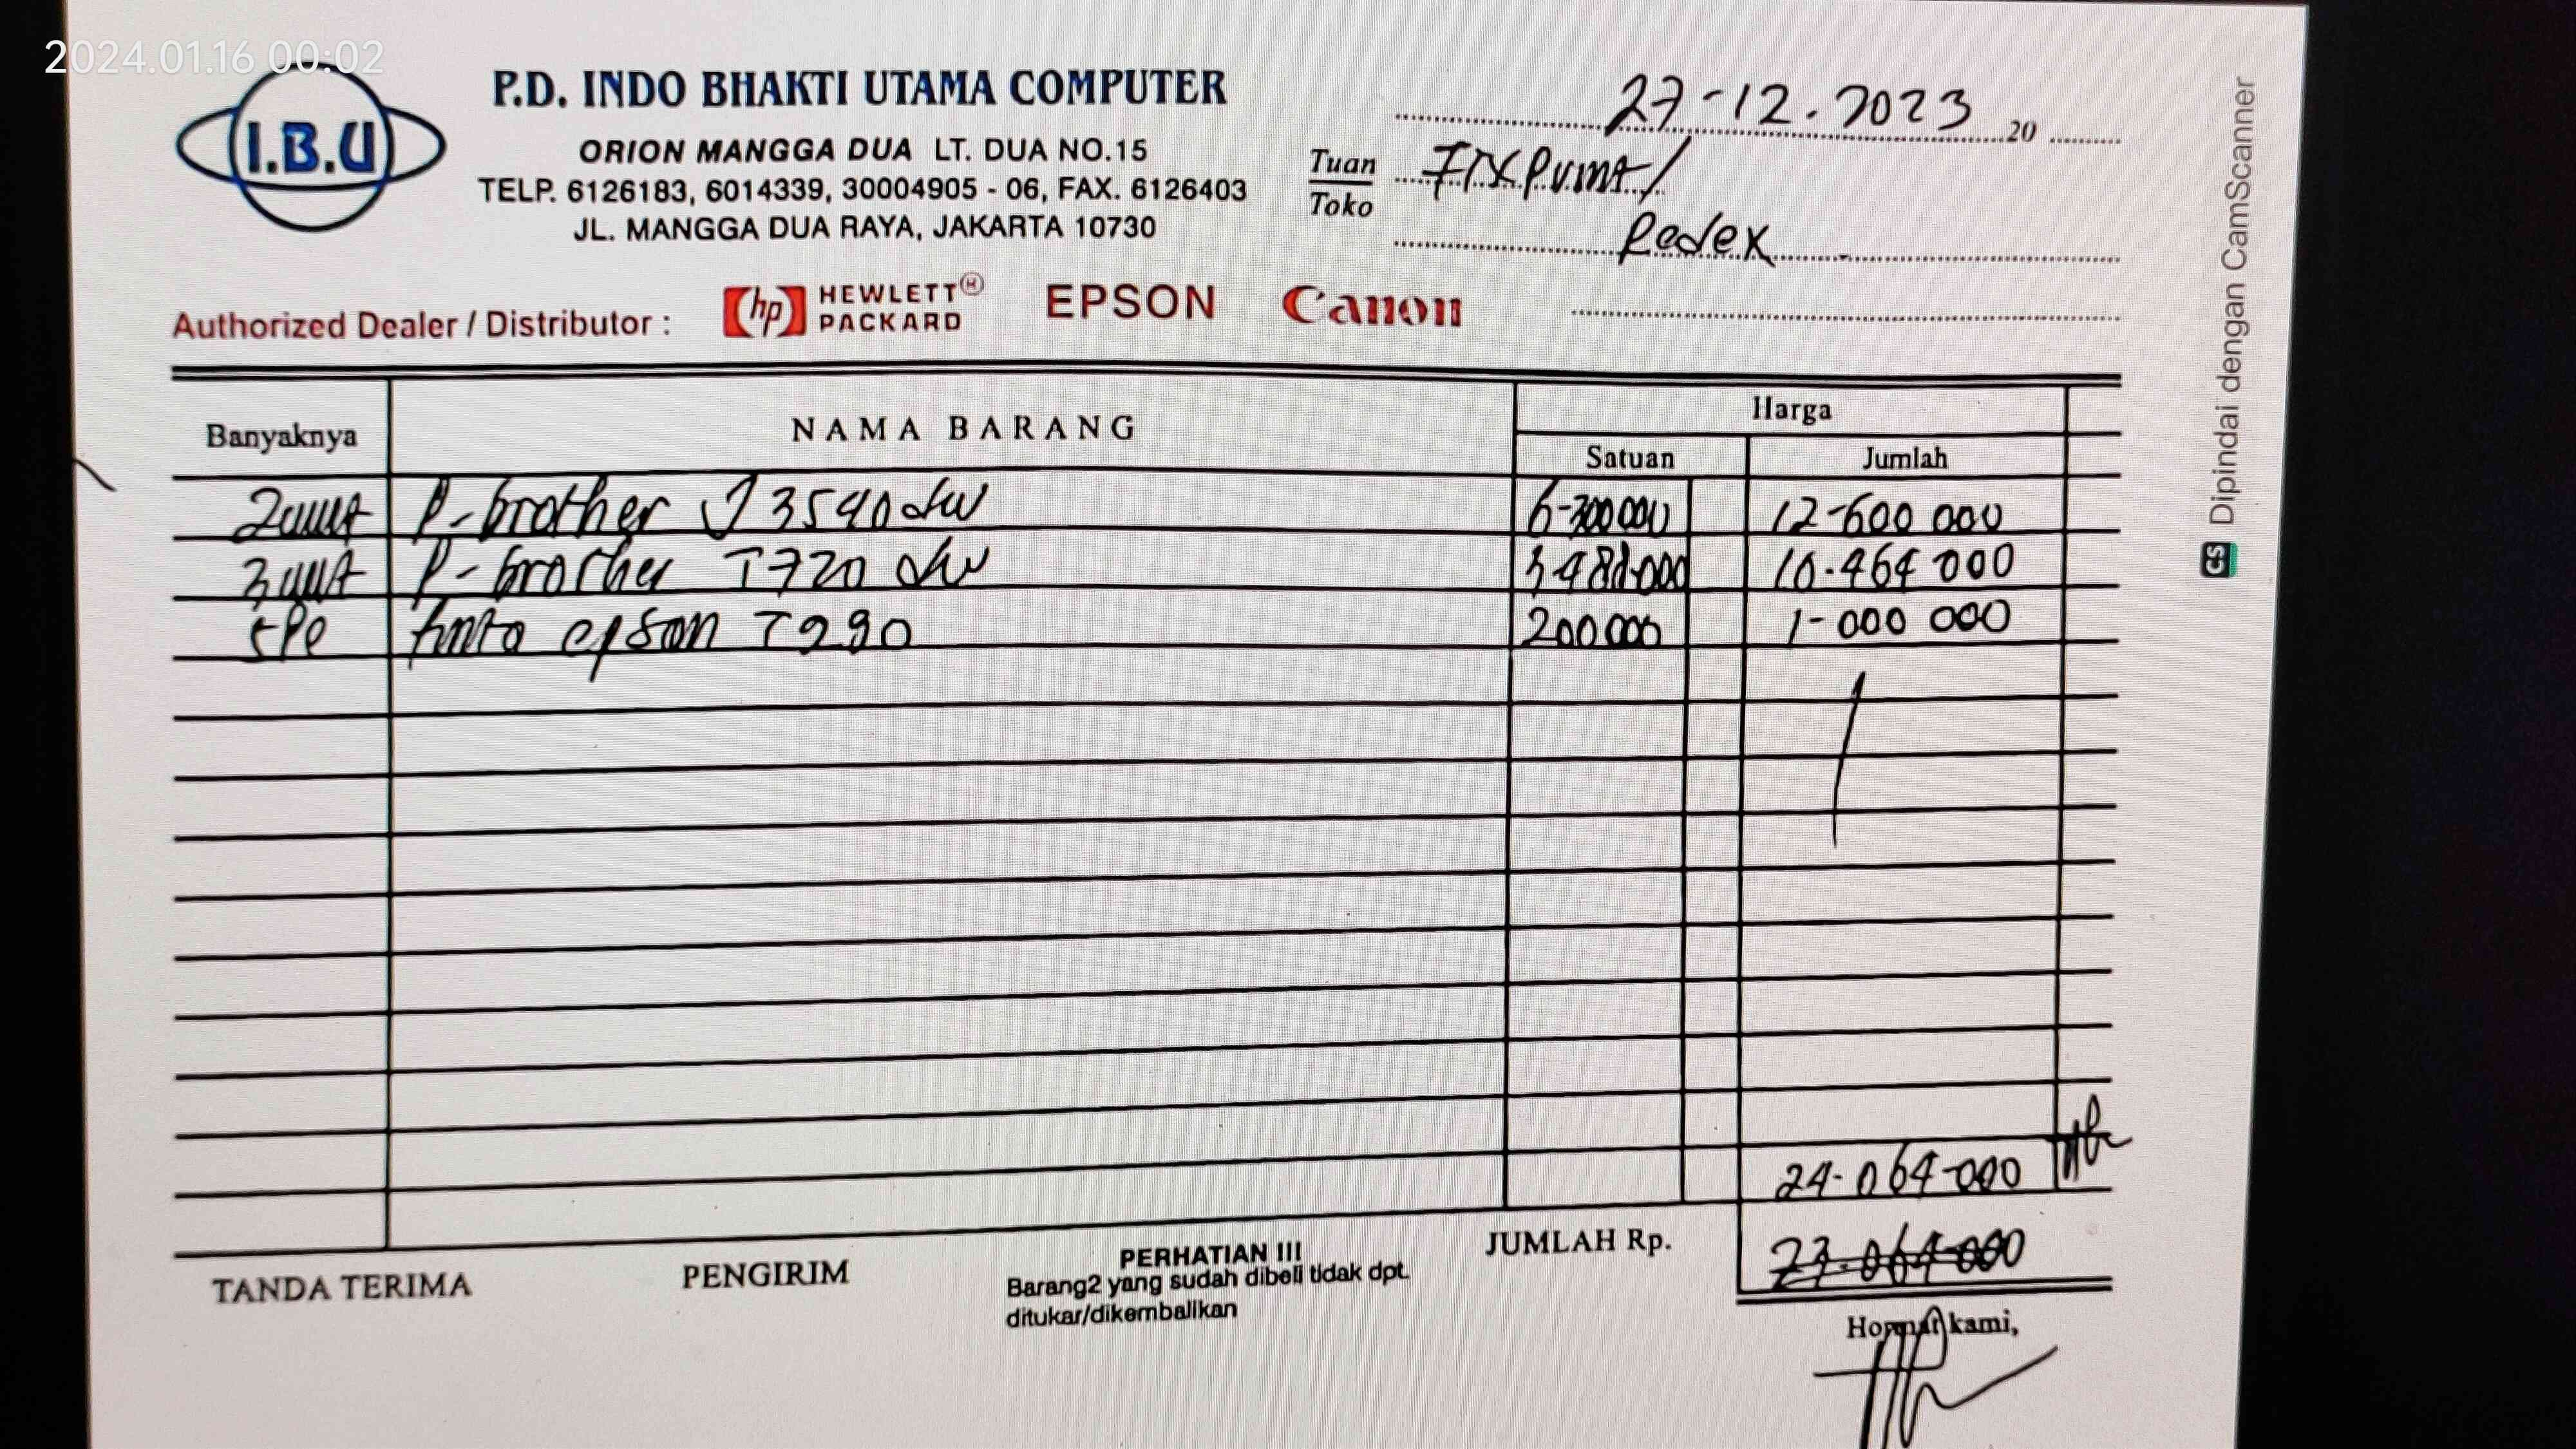 2024.01.16 00:02
I.B.U
P.D. INDO BHAKTI UTAMA COMPUTER
ORION MANGGA DUA LT. DUA NO.15
TELP. 6126183, 6014339, 30004905 - 06, FAX. 6126403
JL. MANGGA DUA RAYA, JAKARTA 10730
27-12.2023 20
Tuan
Toko
Redex
Authorized Dealer / Distributor : hp HEWLETT® PACKARD EPSON Canon
Banyaknya NAMA BARANG Harga
Satuan Jumlah
2 unit P-brother J3540dw 6-300000 12-600 000
3 unit P-brother T720 dw 3488.000 10.464 000
5 Pc tinta epson 200000 1-000 000
24-064-000
JUMLAH Rp. 23.064.000
TANDA TERIMA PENGIRIM
PERHATIAN !!!
Barang2 yang sudah dibeli tidak dpt.
ditukar/dikembalikan
Hormat kami,
CS Dipindai dengan CamScanner